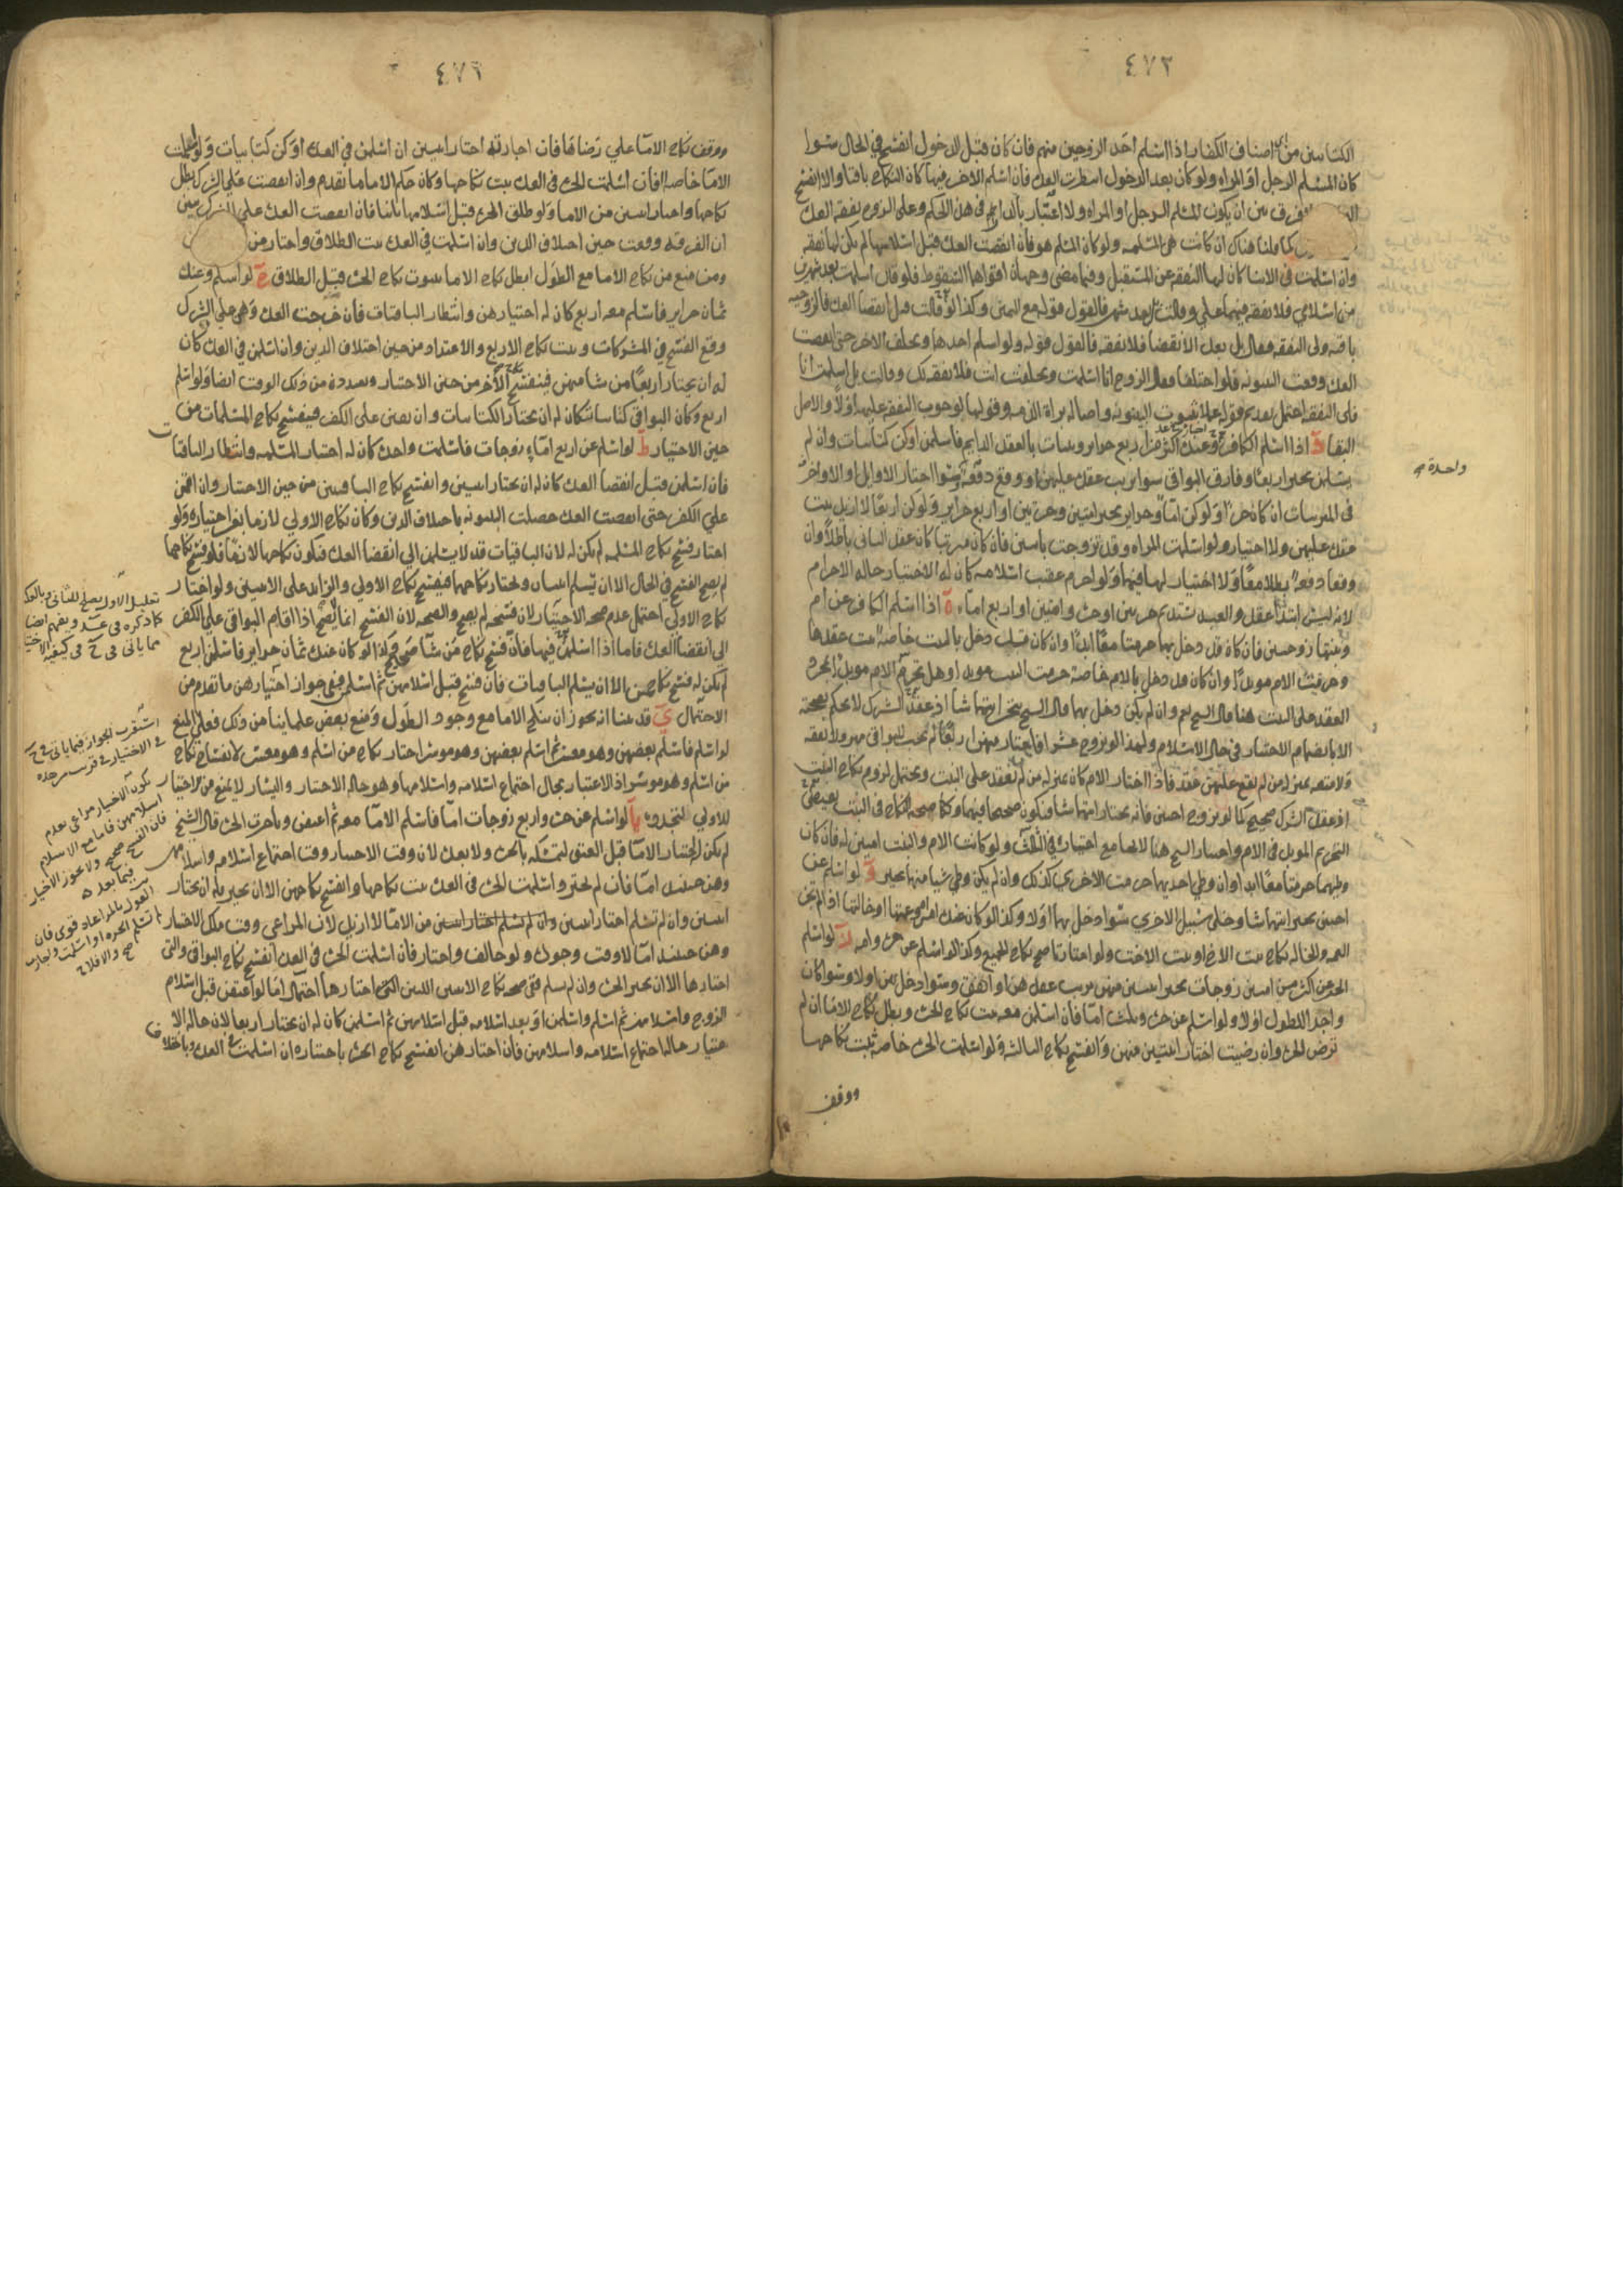 ٤٧٢
الكتابيين من اصناف الكفار اذا اسلم احد الزوجين منهم فان كان قبل الدخول انفسخ في الحال سوا
كان المسلم الرجل او المراه ولو كان بعد الدخول انتظرت العده فان اسلم الاخر فيها كان النكاح باقيا والا انفسخ
فرق بين ان يكون المسلم الرجل او المراه ولا اعتبار بالدار في هذا الحكم وعلى الزوج نفقه العده
كما قلنا هناك ان كانت هي المسلمه ولو كان المسلم هو فان انقضت العده قبل اسلامها لم يكن لها نفقه
وان اسلمت في الاثنا كان لها النفقه عن المستقبل وفيما مضى وجهان اقواهما السقوط فلو قال اسلمت بعد شهرين
من اسلامي فلا نفقه فيهما علي وقالت بل بعد شهر فالقول قوله مع اليمين وكذا لو قالت قبل انقضا العده فالزوجيه
باقيه ولي النفقه فقال بل بعد الانقضا فلا نفقه فالقول قوله ولو اسلم احدهما وتخلف الاخر حتى انقضت
العده وقعت البينونه فلو اختلفا فقال الزوج انا اسلمت وتخلفت انت فلا نفقه لك وقالت بل اسلمت انا
فلي النفقه احتمل تقديم قوله عملا بثبوت البينونه واصاله براة الذمه وقولها لوجوب النفقه عليه اولا والاصل
البقا د اذا اسلم الكافر وعنده اكثر من اربع حراير وثنيات بالعقد الدايم فاسلمن او كن كتابيات وان لم
يسلمن تخير اربعا وفارق البواقي سوا ترتب عقده عليهن او وقع دفعه وسوا اختار الاوايل او الاواخر
واحدة
في المترتبات ان كان حرا ولو كن اما وحراير تخير امتين وحرتين او اربع حراير ولو كن اربعا لا ازيد ثبت
عقده عليهن ولا اختيار ولو اسلمت المراه وقد تزوجت باثنين فان كان مرتبا كان عقد الثاني باطلا وان
وقعا دفعه بطلا معا ولا اختيار لها فيهما ولو احرم عقيب اسلامه كان له الاختيار حاله الاحرام
لانه ليس ابتدا عقد والعبد يستديم حرتين او حره وامتين او اربع اماء ه اذا اسلم الكافر عن ام
وبنتها زوجتين فان كان قد دخل بهما حرمتا معا ابدا وان كان قد دخل بالبنت خاصة ثبت عقدها
وحرمت الام موبدا وان كان قد دخل بالام خاصة حرمت البنت موبدا وهل تحرم الام موبدا لمجرد
العقد على البنت هنا قال الشيخ نعم وان لم يكن دخل بهما قال الشيخ يتخير ايتهما شا اذ عقد الشرك لا يحكم بصحته
الا بانضمام الاختيار في حال الاسلام ولهذا لو تزوج عشرا فاختار منهن اربعا لم يجب للبواقي مهر ولا نفقه
ولا متعه بمنزله من لم يقع عليهن عقد فاذا اختار الام كان بمنزله من لم يعقد على البنت ويحتمل لزوم نكاح البنت
اذ عقد الشرك صحيح كما لو تزوج اختين فانه يختار ايتهما شا فيكون صحيحا فيهما وكان صحه النكاح في البنت يقتضي
التحريم الموبد في الام واختار الشيخ هنا
وطيهما حرمتا معا ابدا وان وطي احديهما حرمت الاخرى كذلك وان لم يكن وطي شيا منهما تخير و لو اسلم عن
اختين تخير ايتهما شا وخلى سبيل الاخرى سوا دخل بها اولا وكذا لو كان عنده امراه وعمتها او خالتها اذا لم تجز
العمه والخاله نكاح بنت الاخ او بنت الاخت ولو اختارتا صح نكاح الجميع وكذا لو اسلم عن حره وامه ز لو اسلم
الحر عن اكثر من امتين زوجات تخير امتين منهن ترتب عقدهن او اتفق وسوا دخل بهن اولا وسوا كان
واجد الطول اولا ولو اسلم عن حره وثلث اما فان اسلمن معه ثبت نكاح الحره وبطل نكاح الاما ان لم
ترض الحره وان رضيت اختار اثنتين منهن وانفسخ نكاح الثالثه ولو اسلمت الحره خاصة ثبت نكاحها
ووقف
٤٧٦
ووقف نكاح الاما على رضاها فان اجازته اختار امتين ان اسلمن في العده او كن كتابيات ولو اسلمت
الاما خاصه فان اسلمت الحره في العده ثبت نكاحها وكان حكم الاما ما تقدم وان انقضت على الشرك بطل
نكاحها واختار امتين من الاما ولو طلق الحره قبل اسلامها ثلثا فان انقضت العده على الشرك تبين
ان الفرقه وقعت حين اختلاف الدين وان اسلمت في العده ثبت الطلاق واختار من
ومن منع من نكاح الاما مع الطول ابطل نكاح الاما بثبوت نكاح الحره قبل الطلاق ح لو اسلم وعنده
ثمان حراير فاسلم معه اربع كان له اختيارهن وانتظار الباقيات فان خرجت العده وهي على الشرك
وقع الفسخ في المشركات وثبت نكاح الاربع والاعتداد من حين اختلاف الدين وان اسلمن في العده كان
له ان يختار اربعا من شا منهن فينفسخ نكاح الاخر من حين الاختيار ويعتددن من ذلك الوقت ايضا ولو اسلم
اربع وكان البواقي كتابيات كان له ان يختار الكتابيات وان بقين على الكفر فينفسخ نكاح المسلمات من
حين الاختيار ط لو اسلم عن اربع اماء زوجات فاسلمت واحده كان له اختيار المسلمه وانتظار الباقيات
فان اسلمن قبل انقضا العده كان له ان يختار اثنتين وانفسخ نكاح الباقيتين من حين الاختيار وان اقمن
على الكفر حتى انقضت العده حصلت البينونه باختلاف الدين وكان نكاح الاولى لازما بغير اختياره ولو
اختار فسخ نكاح المسلمه لم يكن له لان الباقيات قد لا يسلمن الى انقضا العده فيكون نكاحها لازما فلو فسخ نكاحها
لم يصح الفسخ في الحال الا ان يسلم اثنتان ويختار نكاحهما فينفسخ نكاح الاولى والزايد على الاثنتين ولو اختار
نكاح الاولى احتمل عدم صحه الاختيار لان فسخه لم يصح والصحه لان الفسخ انما يصح اذا اقام البواقي على الكفر
الى انقضا العده فاما اذا اسلمن فيها فان فسخ نكاح من شا صح وكذا لو كان عنده ثمان حراير فاسلمن اربع
لم يكن له فسخ نكاحهن الا ان يسلم الباقيات فان فسخ قبل اسلامهن ثم اسلمن ففي جواز اختيارهن ما تقدم من
الاحتمال ي قد بينا انه يجوز ان ينكح الاما مع وجود الطول ومنع بعض علماينا من ذلك فعلى المنع
لو اسلم فاسلم بعضهن وهو معسر ثم اسلم بعضهن وهو موسر اختار نكاح من اسلم وهو معسر لا نفساخ نكاح
من اسلم وهو موسر اذ الاعتبار بحال اجتماع اسلامه واسلامها وهو حاله الاختيار واليسار لا يمنع من الاختيار
للاولى المتجدده يا لو اسلم عن حره واربع زوجات اما فاسلم الاما معه ثم اعتقن وتاخرت الحره قال الشيخ
لم يكن له اختيار الاما قبل العتق لتمسكه بالحره ولا بعده لان وقت الاختيار وقت اجتماع اسلامه واسلامهن
وهن حينئذ اما فان لم يختر واسلمت الحره في العده ثبت نكاحها وانفسخ نكاحهن الا ان تخير وله ان يختار
اثنتين وان لم تسلم اختار اثنتين من الاما لا ازيد لان المراعى وقت ملك الاختيار
وهن حينئذ اما لا وقت وجوده ولو خالف واختار فان اسلمت الحره في العده انفسخ نكاح البواقي والتي
اختارها الا ان تخير الحره وان لم تسلم ففي صحه نكاح الاثنتين اللتين اختارهما احتمال اما لو اعتقن قبل اسلام
الزوج واسلامهن ثم اسلم واسلمن او بعد اسلامه قبل اسلامهن ثم اسلمن كان له ان يختار اربعا لان حاله الا
ختيار حاله اجتماع اسلامه واسلامهن فان اختارهن انفسخ نكاح الحره باختياره ان اسلمت في العده وباختلاف
تعليل الاول يصلح للثاني وبالعكس
كما ذكره في عد ويفهم ايضا
مما ياتي في ح في كيفيه الاختيار
استقرب الجواز فيما ياتي في ح
في الاختيار
يكون الاختيار مراعى بعدم
اسلامهن فاما مع الاسلام
فان الفسخ صحيح ولا يجوز الاختيار
فيما بعد
القول بالمراعاه قوي فان
لم تسلم الحره او اسلمت واجازت
صح والا فلا